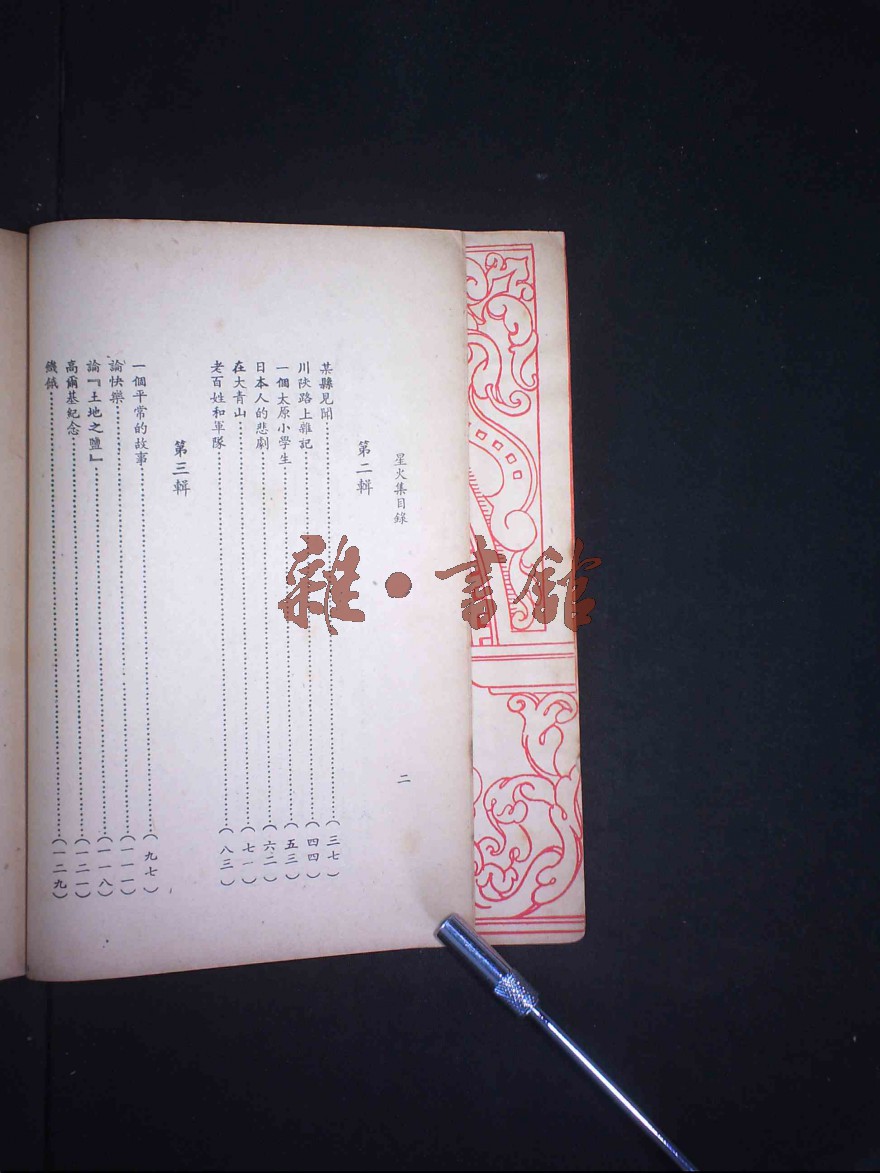 星火集目錄
二
第二輯
某縣見聞(三七)
川陝路上雜記(四四)
一個太原小學生(五三)
日本人的悲劇(六二)
在大青山(七一)
老百姓和軍隊(八三)
第三輯
一個平常的故事(九七)
論快樂(一一一)
論『土地之鹽』(一一八)
高爾基紀念(一二一)
饑餓(一二九)
雜·書館